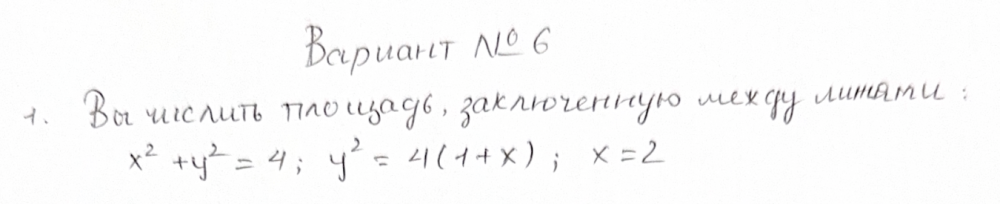 Вариант № 6
1. Вычислить площадь, заключенную между линиями:
x² + y² = 4; y² = 4(1+x); x = 2